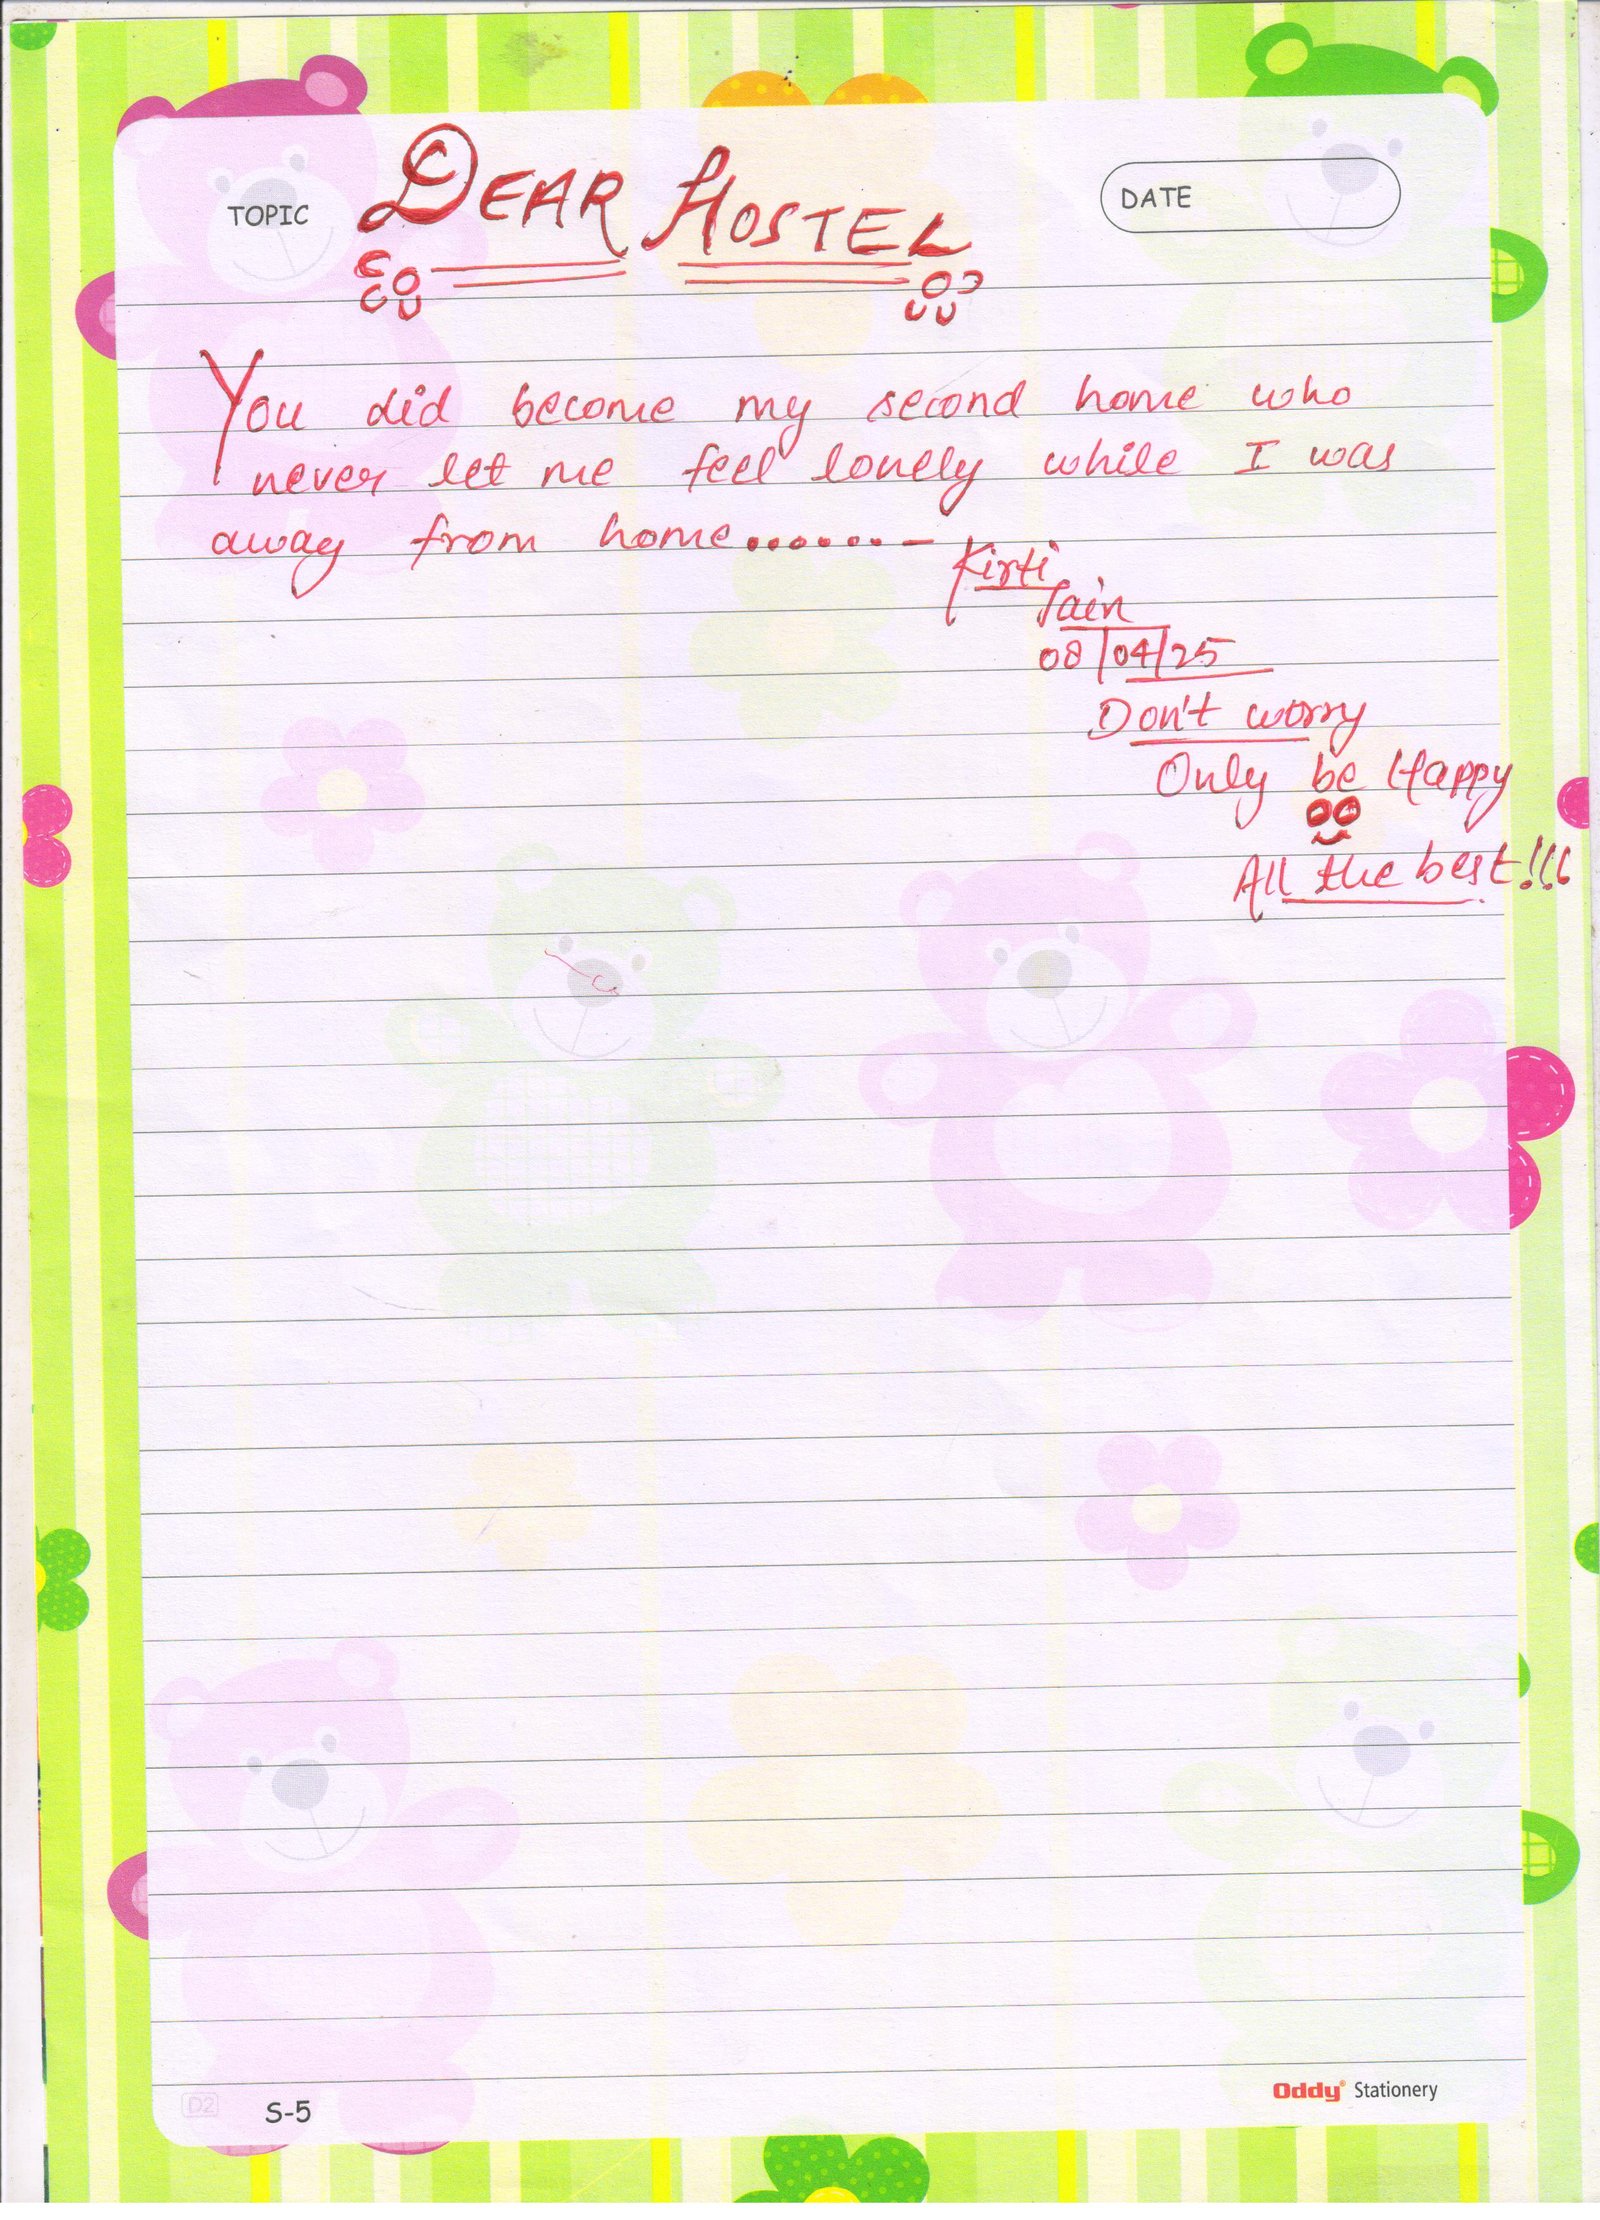 TOPIC
DEAR HOSTEL
DATE
You did become my second home who
never let me feel lonely while I was
away from home.......–
Kirti
Jain
08/04/25
Don't worry
Only be Happy
All the best!!!
D2
S-5
Oddy® Stationery